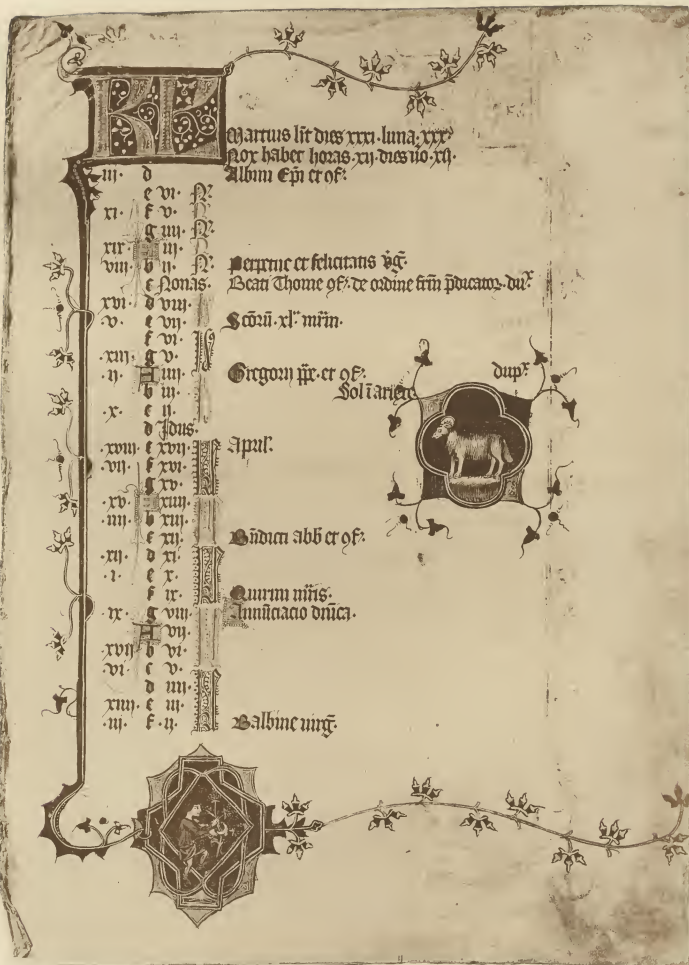 KL
Martius hĩt dies xxxi · luna · xxx ·
Nox habet horas · xij · dies ũo · xij ·
iii · d Albini Ep̃i et ɔf̃ ·
e vi · N̾
xi · f v ·
g iiii · N̾
xix · A iii ·
viii · b ii · N̾ perpetue et felicitatis ṽg̃ ·
c Nonas · Beati Thome ɔf̃ · de ordine frĩm p̃dicatoꝝ · du̾x
xvi · d viii ·
· v · e vii · Sc̃oꝝ · xl · mr̃m ·
f vi ·
· xiii · g v ·
· ii · A iiii · Gregorii pp̃e · et ɔf̃ · dup̾x
b iii · Sol ĩ ariete
x · c ii ·
d Idus ·
· xviii · e xvii · April̾ ·
· vii · f xvi ·
g xv ·
· xv · A xiiii ·
· iiii · b xiii ·
c xii · Bñdicti abb̃ et ɔf̃ ·
· xii · d xi ·
· i · e x ·
f ix · Quirini mr̃is ·
· ix · g viii · Annũciacio dñica ·
A vii ·
· xvii · b vi ·
· vi · c v ·
d iiii ·
· xiiii · e iii ·
· iii · f · ii · Balbine uirg̃ ·